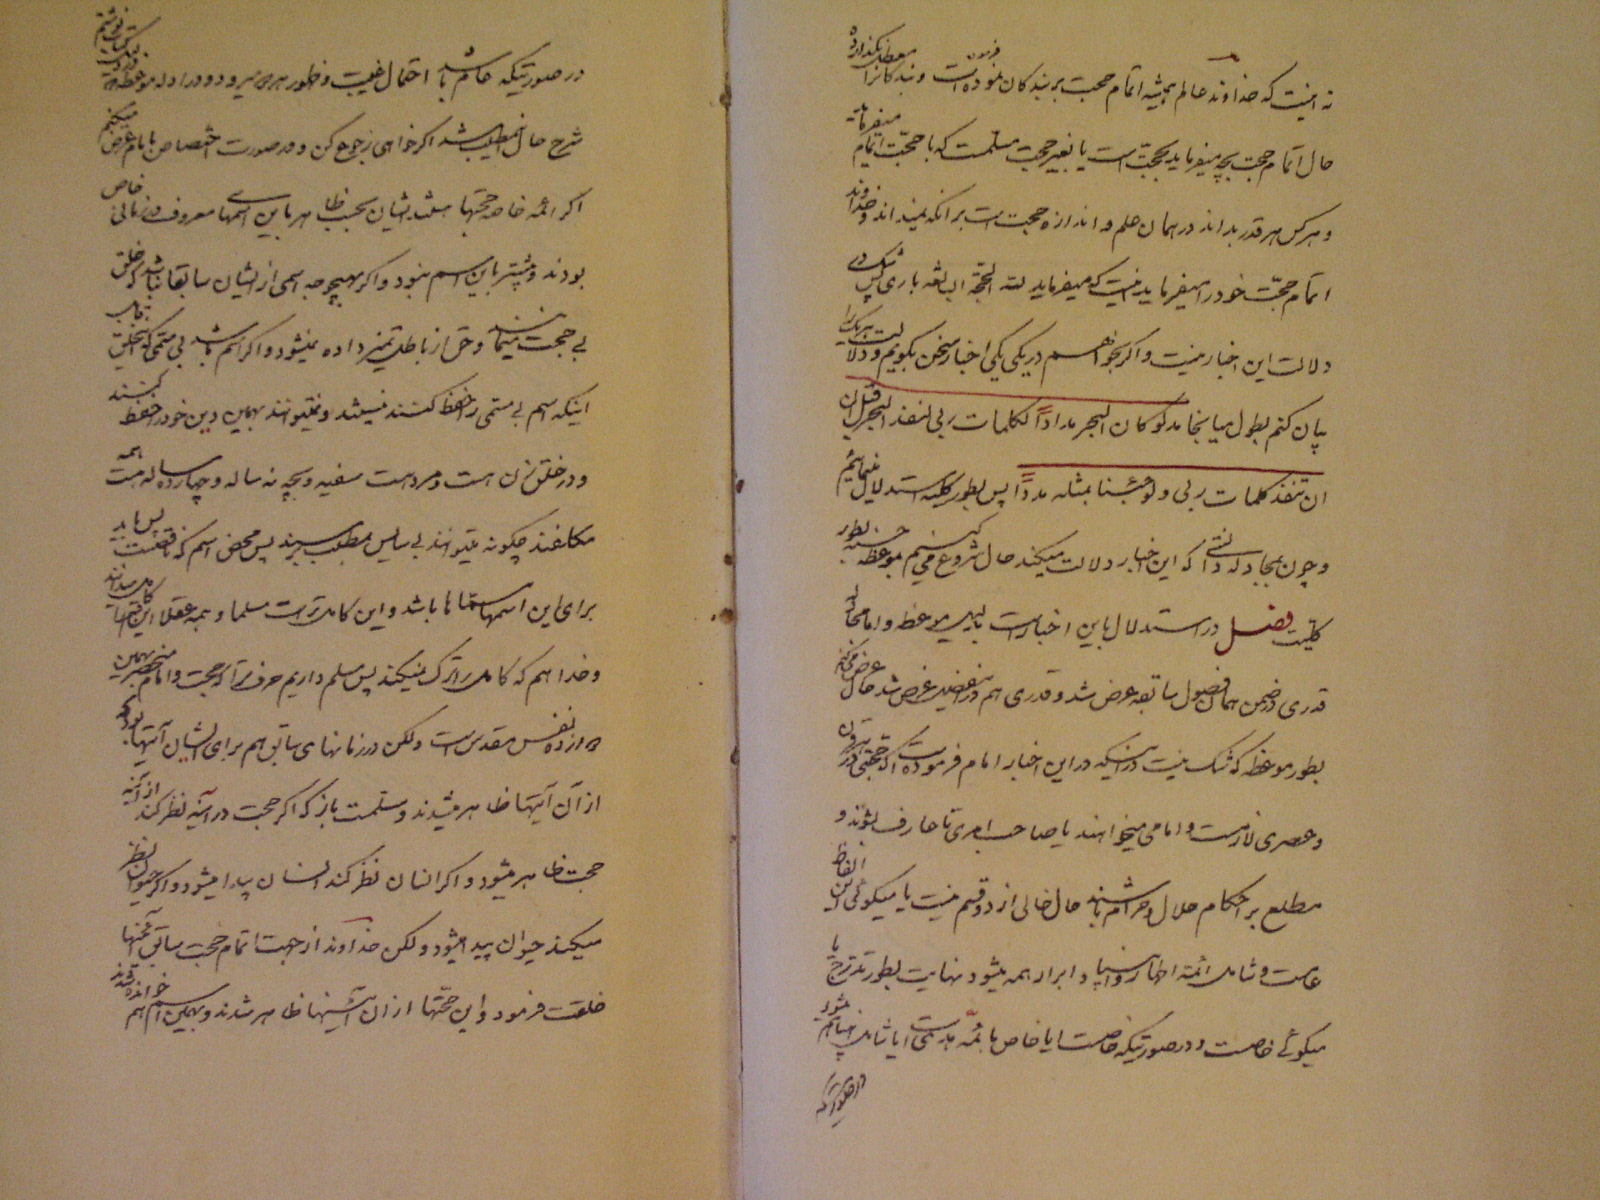 نه اینست که خداوند عالم همیشه اتمام حجت بر بندگان فرموده است و بندگانرا معطل نگذارده
حال اتمام حجت بچه میفرماید بحجت است یا بغیر حجت مسلمست که با حجت اتمام میفرماید
و هر کس هر قدر بداند در همان علم و اندازه حجت است بر آنکه نمیداند و خداوند
اتمام حجت خود را میفرماید اینست که میفرماید لله الحجة البالغه باری پس شک در
دلالت این اخبار نیست و اگر بخواهم در یکی یکی اخبار سخن بگویم و دلالت هر یک را
بیان کنم بطول میانجامد لو کان البحر مدادا لکلمات ربی لنفد البحر قبل ان
ان تنفد کلمات ربی و لو جئنا بمثله مددا پس بطور کلیه استدلال مینمائیم
و چون بمجادله دانستی که این اخبار دلالت میکند حال شروع می کنیم بموعظه حسنه بطور
کلیت فصل در استدلال باین اخبار است بدلیل موعظه و
قدری در ضمن همان فصول سابقه عرض شد و قدری هم در عرض شد حال عرض میکنم
بطور موعظه که شک نیست در اینکه در این اخبار امام فرموده است که حجتی در هر قرن
و عصری لازمست و امامی میخواهند یا صاحب امری تا عارف بشوند و
مطلع بر احکام حلال و حرام باشند حال خالی از دو قسم نیست یا میگوئی این الفاظ
عامست و شامل ائمه اطهار و انبیاء و ابرار همه میشود نهایت بطور تدریج یا
میگوئی خاصست و در صورتیکه خاصست ایا خاص بائمه است ایا شامل انبیا هم میشود
در صورتیکه عام باشد احتمال غیبت و ظهور هر دو میرود و در ادله موعظه
شرح حال این مطلب شد اگر خواهی رجوع کن و در صورت اختصاص بامام عرض میکنم
اگر ائمه خاصه حجتها هستند ایشان بحسب ظاهر باین اسمها معروف در زمانی خاص
بودند و پیشتر باین اسم نبود و اگر بهیچوجه اسمی از ایشان سابقا نباشد که خلق
بی حجت میمانند و حق از باطل تمیز داده نمیشود و اگر اسم باشد بی مسمی که خلق
اینکه اسم بی مسمی را حفظ کنند نیستند و نمیتوانند بهمین دین خود را حفظ کنند
و در خلق زن هست و مرد هست سفیه و بچه نه ساله و چهارده ساله هست همه
مکلفند چگونه میتوانند بی سایس بمطلب برسند پس محض اسم که نیست پس باید
برای این اسمها مسماها باشد و این کاملتر است مسلما و همه عقلا این را کامل میدانند
و خدا هم که کامل را ترک نمیکند پس مسلم داریم حرف ترا که حجت و امام منحصر بهمین
دوازده نفس مقدس است ولکن در زمانهای سابق هم برای ایشان آینها بود که
از آن آینها ظاهر میشدند و مسلمست باز که اگر حجت در آینه نظر کند از آینه
حجت ظاهر میشود و اگر انسان نظر کند انسان پیدا میشود و اگر حیوان نظر
میکند حیوان پیدا میشود ولکن خداوند از جهت اتمام حجت سابق آینها
خلقت فرمود و این حجتها از آن آینها ظاهر شدند و بهمین اسم هم خوانده شدند